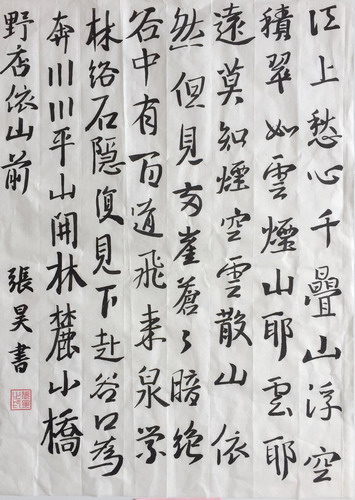 江上愁心千疊山浮空
積翠如雲煙山耶雲耶
遠莫知煙空雲散山依
然但見兩崖蒼々暗絕
谷中有百道飛來泉縈
林絡石隱復見下赴谷口為
奔川川平山開林麓小橋
野店依山前 張昊書